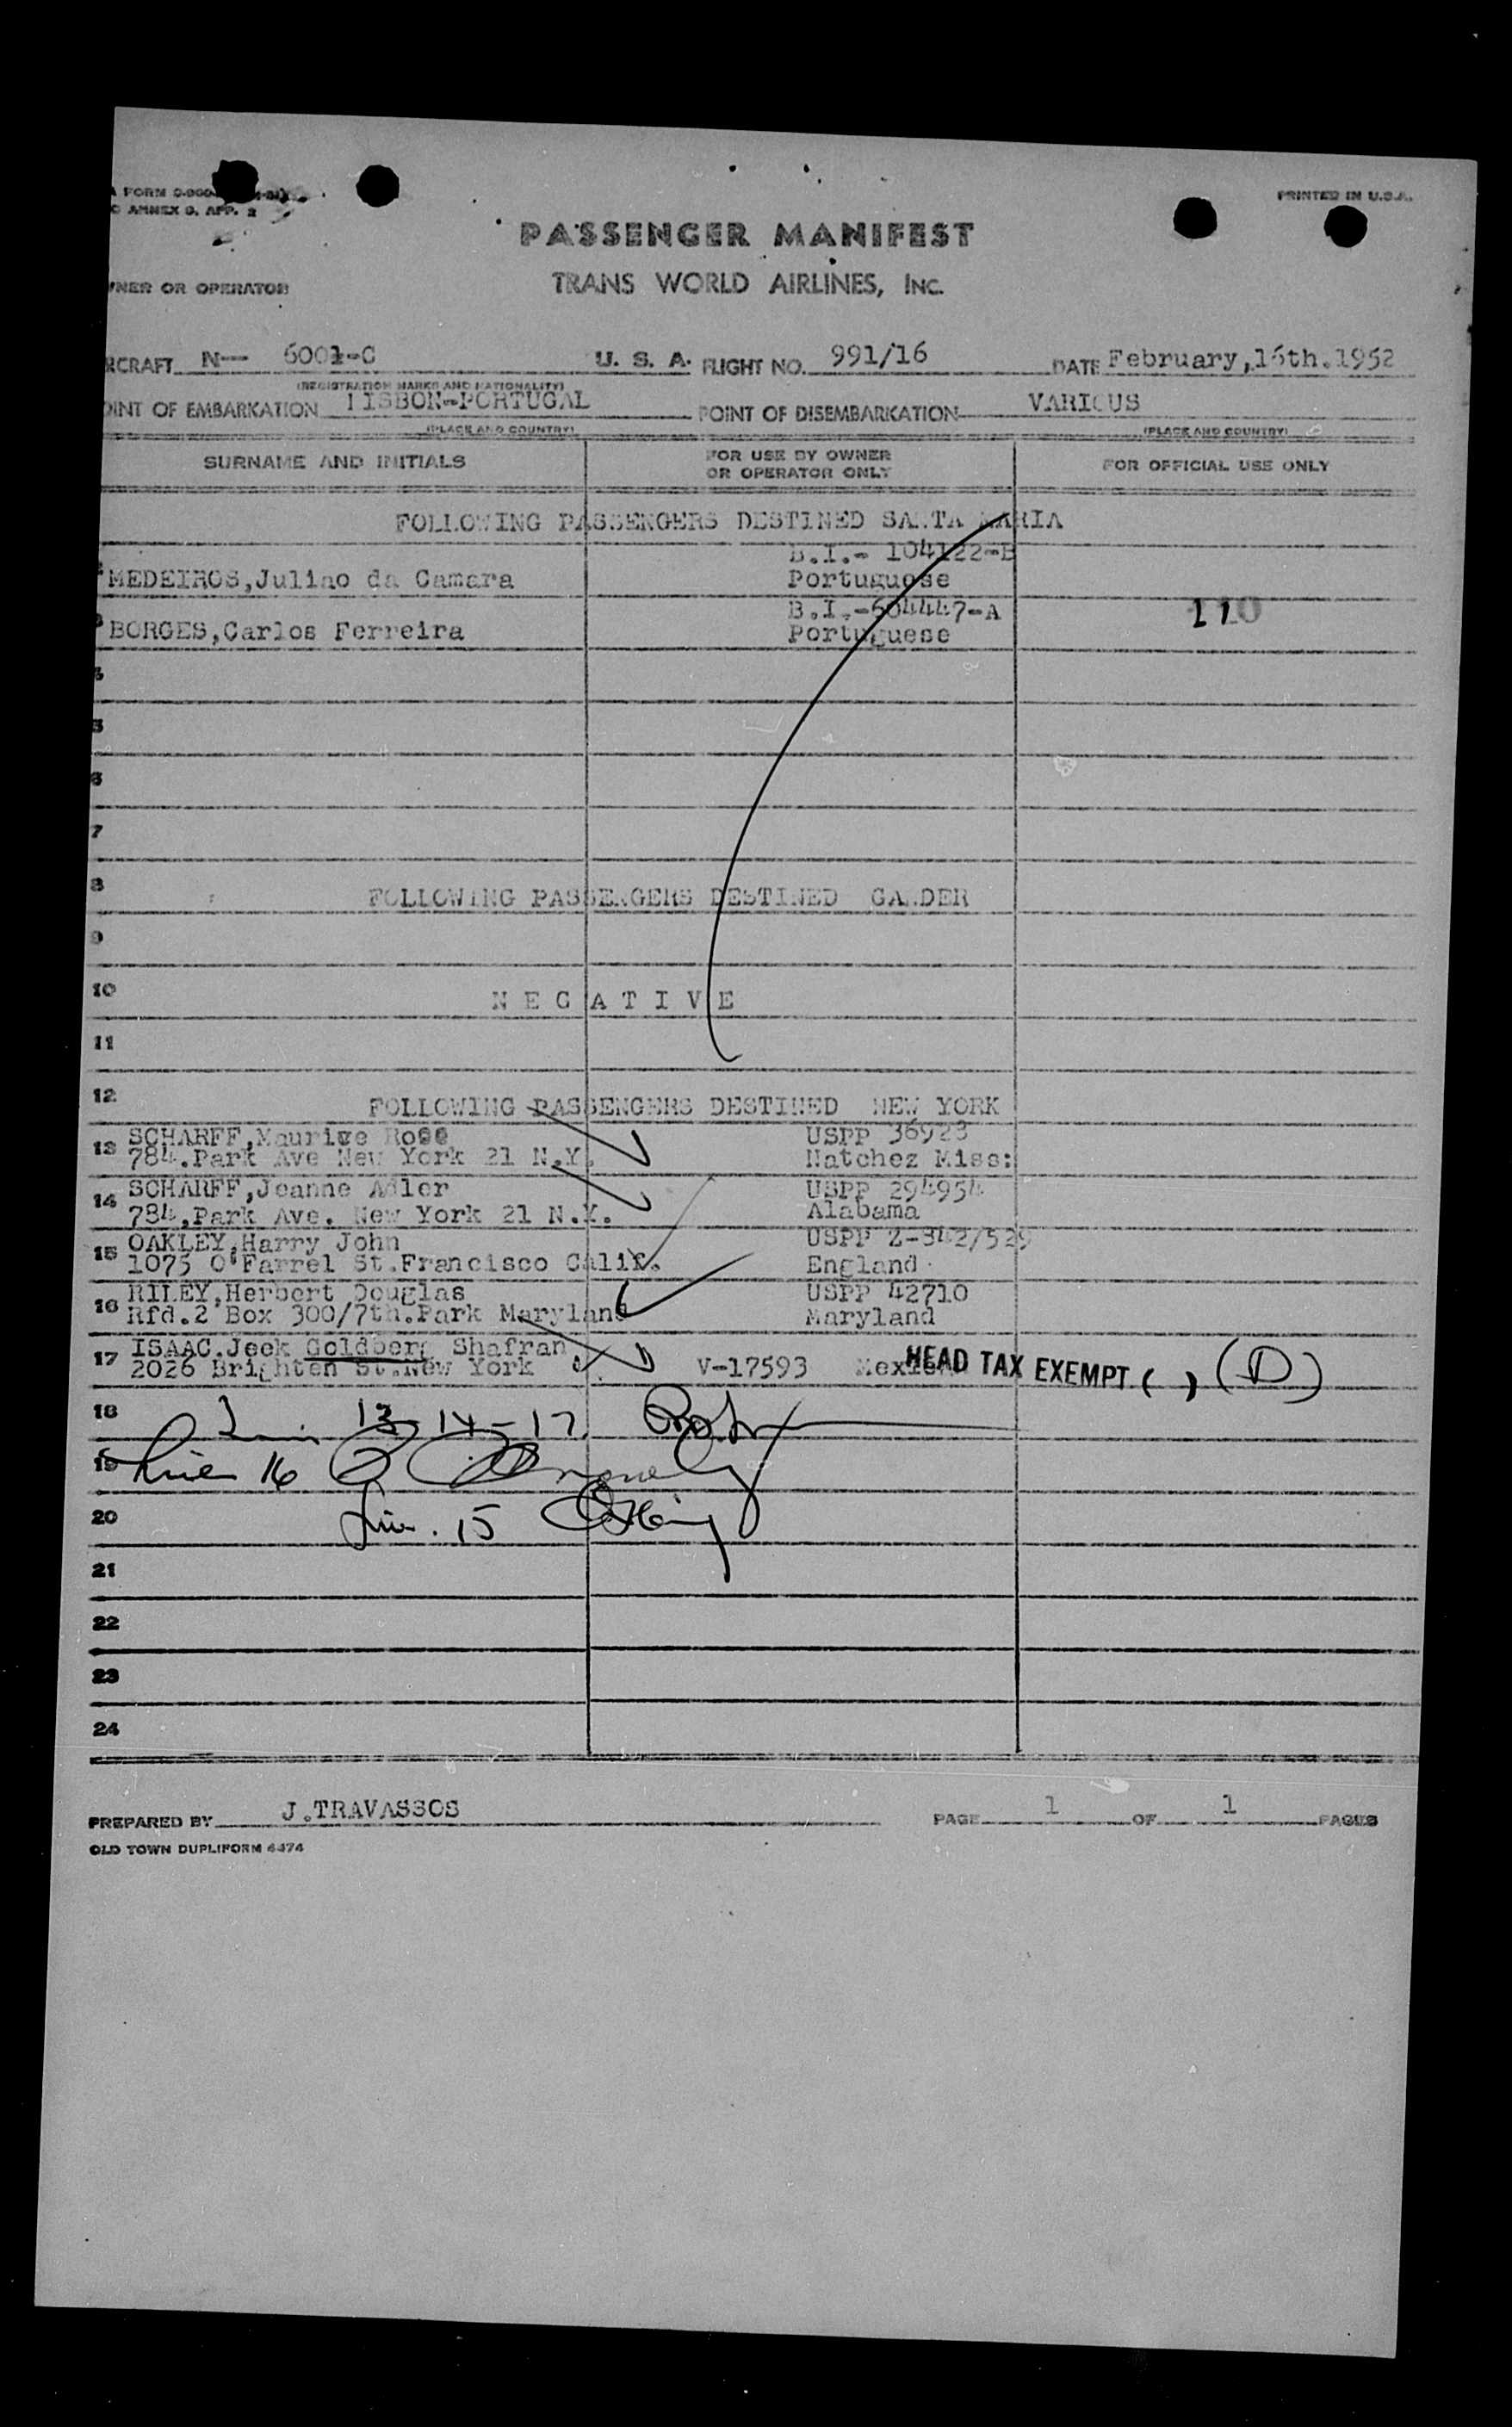 A FORM
ANNEX 9. APP. 2
PRINTED IN U.S.A.
PASSENGER MANIFEST
OWNER OR OPERATOR TRANS WORLD AIRLINES, INC.
AIRCRAFT N-- 6001-C U. S. A. FLIGHT NO. 991/16 DATE February,16th.1952
(REGISTRATION MARKS AND NATIONALITY)
POINT OF EMBARKATION LISBON-PORTUGAL POINT OF DISEMBARKATION VARIOUS
(PLACE AND COUNTRY) (PLACE AND COUNTRY)
SURNAME AND INITIALS FOR USE BY OWNER OR OPERATOR ONLY FOR OFFICIAL USE ONLY
FOLLOWING PASSENGERS DESTINED SANTA MARIA
B.I.- 104122-B
MEDEIROS,Juliao da Camara Portuguese
B.I.-604447-A
3 BORGES,Carlos Ferreira Portuguese 110
4
5
6
7
8 FOLLOWING PASSENGERS DESTINED GANDER
9
10 N E G A T I V E
11
12 FOLLOWING PASSENGERS DESTINED NEW YORK
13 SCHARFF,Maurice Rose USPP 36923
784.Park Ave New York 21 N.Y. Natchez Miss:
14 SCHARFF,Jeanne Adler USPP 294954
784,Park Ave. New York 21 N.Y. Alabama
15 OAKLEY,Harry John USPP Z-342/529
1075 O'Farrel St.Francisco Calif. England
16 RILEY,Herbert Douglas USPP 42710
Rfd.2 Box 300/7th.Park Maryland Maryland
17 ISAAC.Jeck Goldberg Shafran
2026 Brighten St.New York V-17593 HEAD TAX EXEMPT ( ) (D)
18 13-14-17
19 Line 16
20 Line. 15
21
22
23
24
PREPARED BY J.TRAVASSOS PAGE 1 OF 1 PAGES
OLD TOWN DUPLIFORM 4474